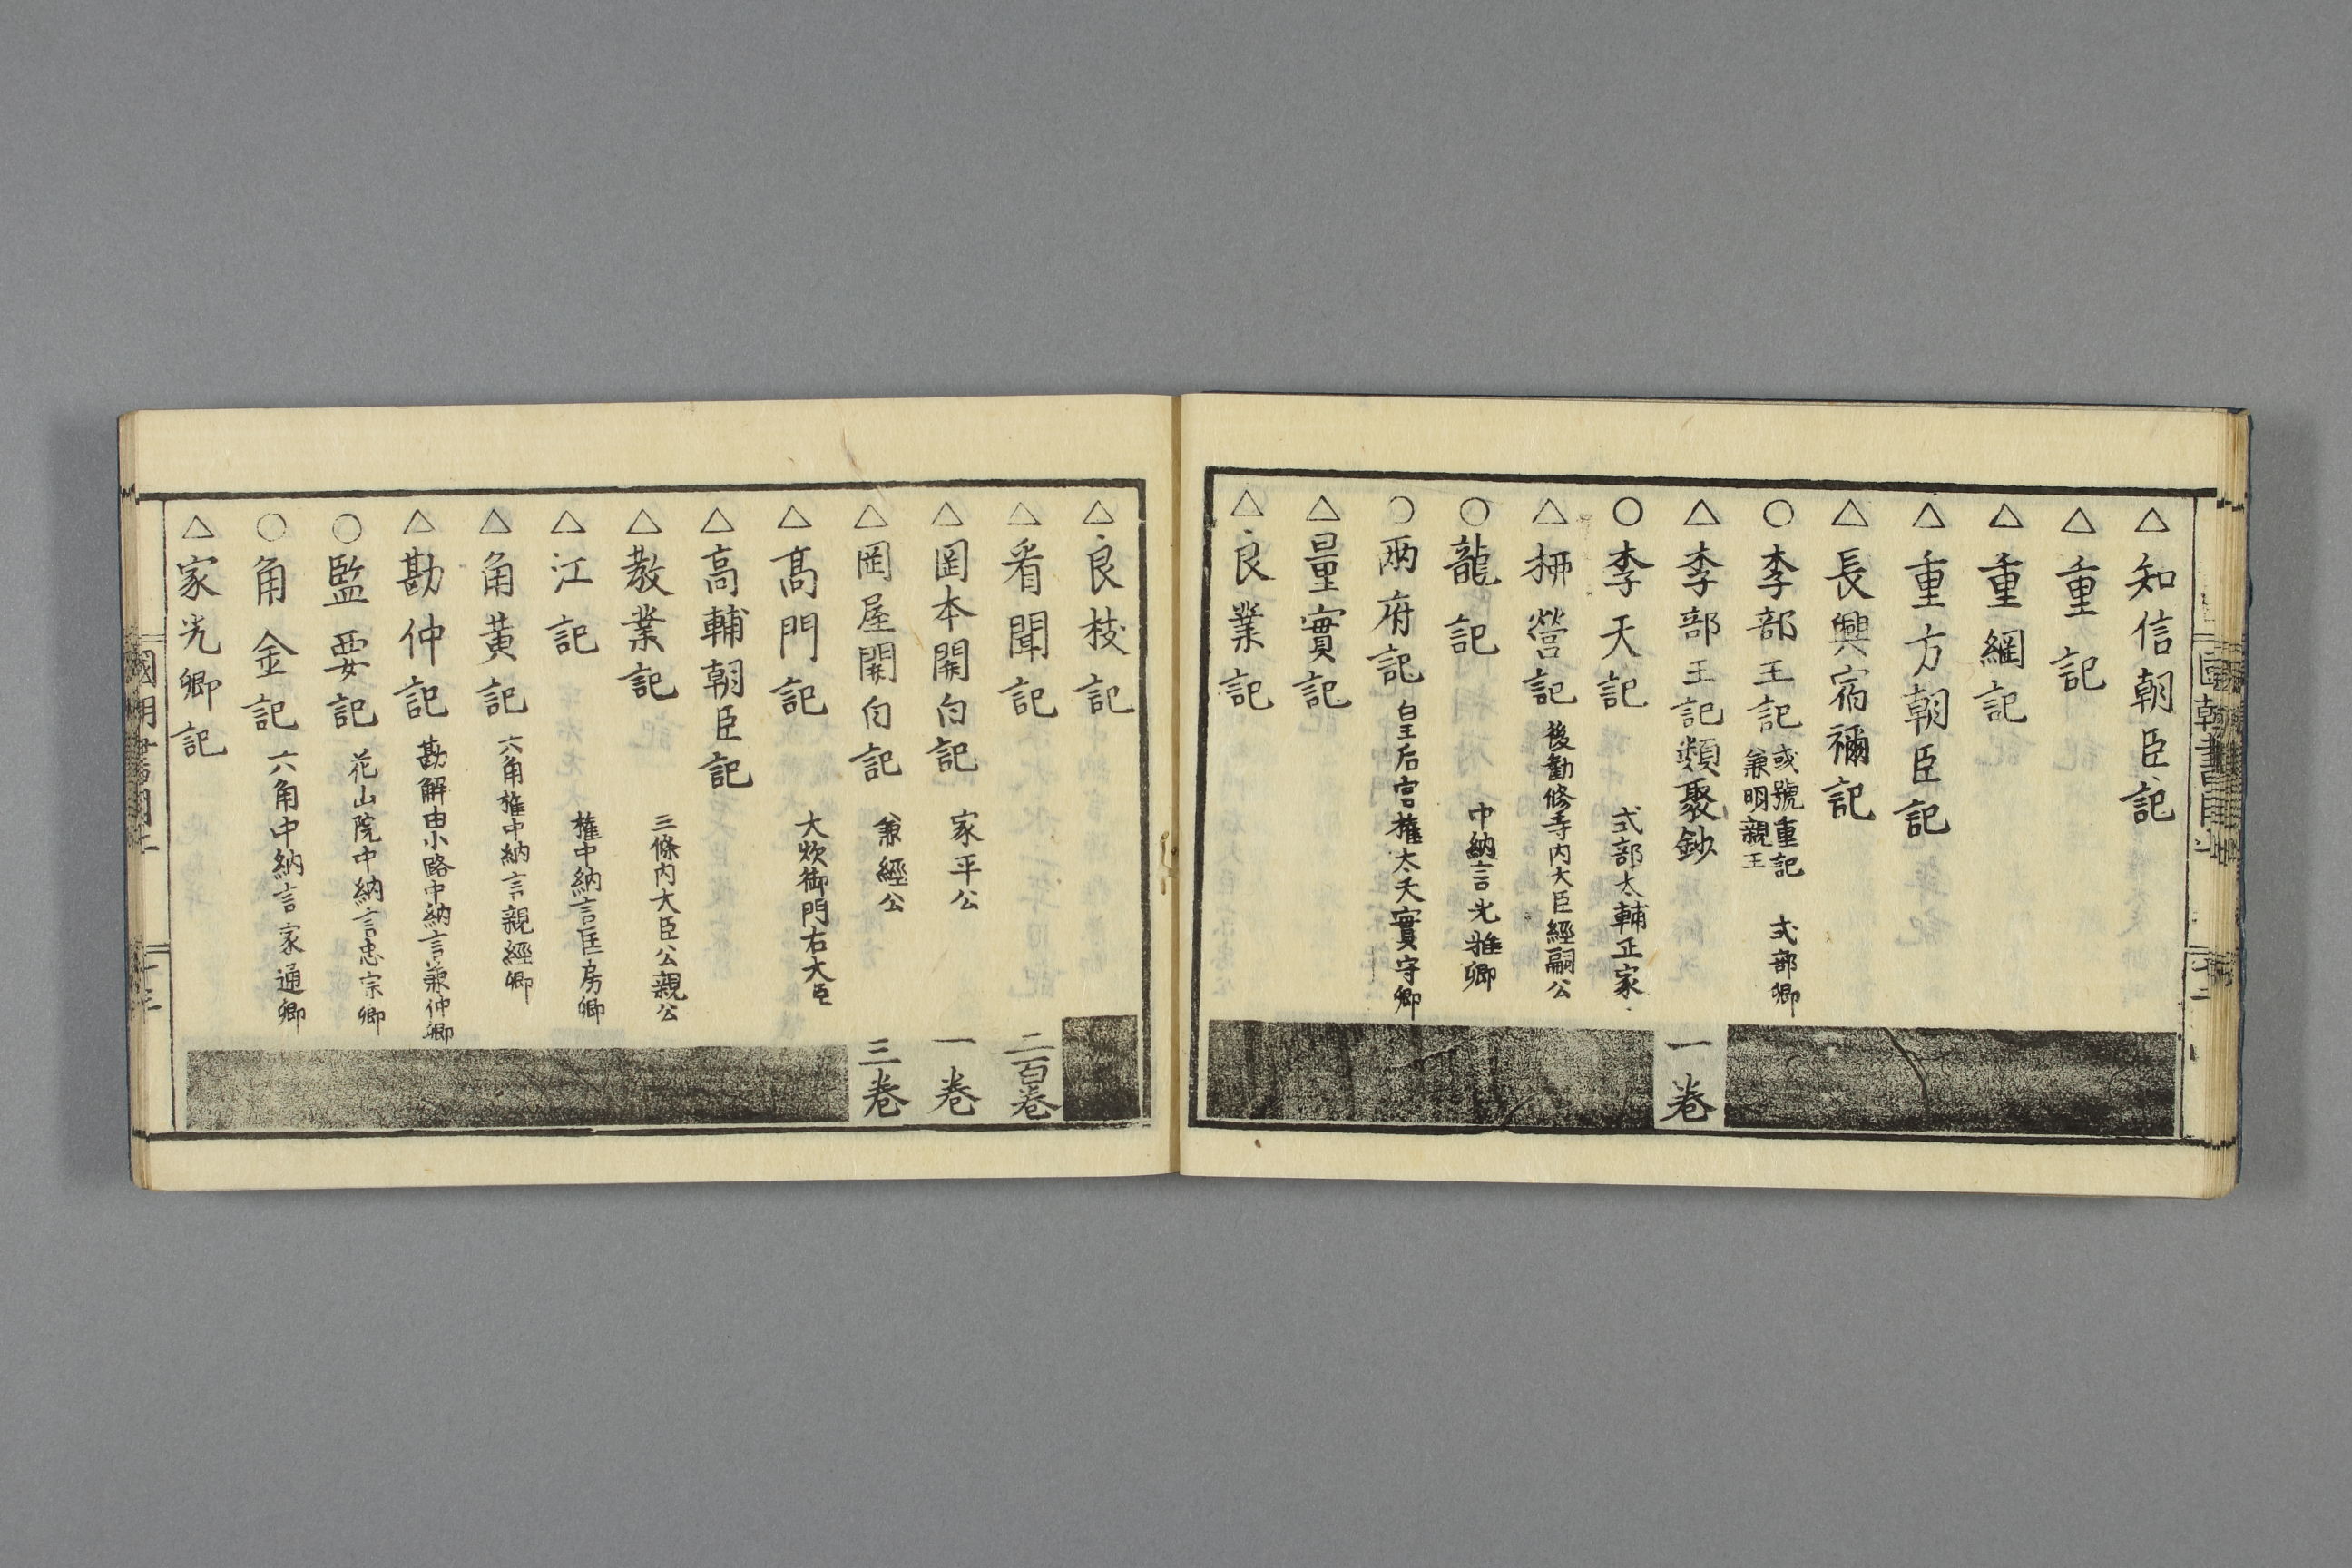 △知信朝臣記
△重記
△重綱記
△重方朝臣記
△長興宿禰記
○李部王記 或號重記 式部卿
兼明親王
△李部王記類聚鈔 一卷
○李天記 式部太輔正家
△柳營記 後勸修寺内大臣經嗣公
○龍記 中納言光雅卿
○兩府記 皇后宮權太夫實守卿
△量實記
△良業記
△良枝記
△看聞記 二百卷
△岡本關白記 家平公 一卷
△岡屋關白記 兼經公 三卷
△髙門記 大炊御門右大臣
△高輔朝臣記
△教業記 三條内大臣公親公
△江記 權中納言匡房卿
△角黃記 六角權中納言親經卿
△勘仲記 勘解由小路中納言兼仲卿
○監要記 花山院中納言忠宗卿
○角金記 六角中納言家通卿
△家光卿記